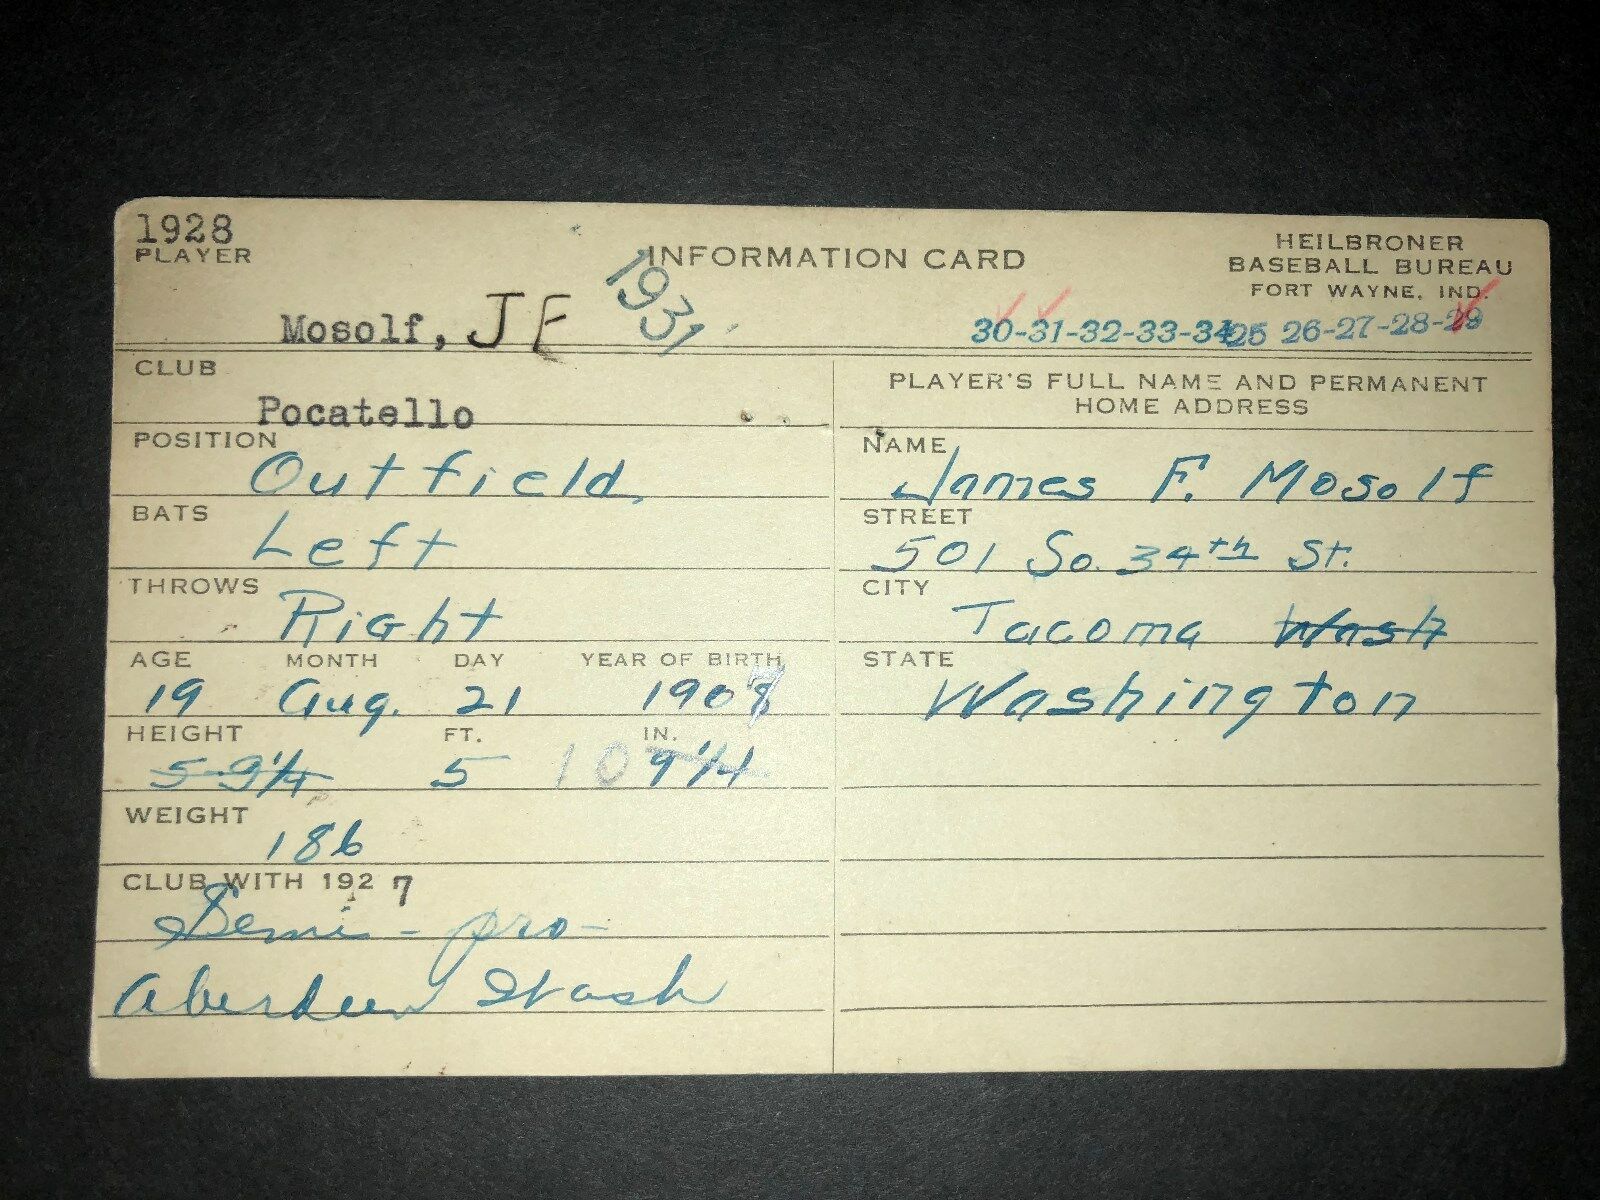 1928
PLAYER
INFORMATION CARD
HEILBRONER
BASEBALL BUREAU
FORT WAYNE, IND.
Mosolf, J F
1931
30-31-32-33-34 25 26-27-28-29
CLUB
Pocatello
POSITION
Outfield
BATS
Left
THROWS
Right
AGE MONTH DAY YEAR OF BIRTH
19 Aug. 21 190
HEIGHT FT. IN.
5-9 1/4 5 10 9 1/4
WEIGHT
186
CLUB WITH 1927
Semi-pro-
Aberdeen Wash
PLAYER'S FULL NAME AND PERMANENT
HOME ADDRESS
NAME
James F. Mosolf
STREET
501 So. 34th St.
CITY
Tacoma Wash
STATE
Washington